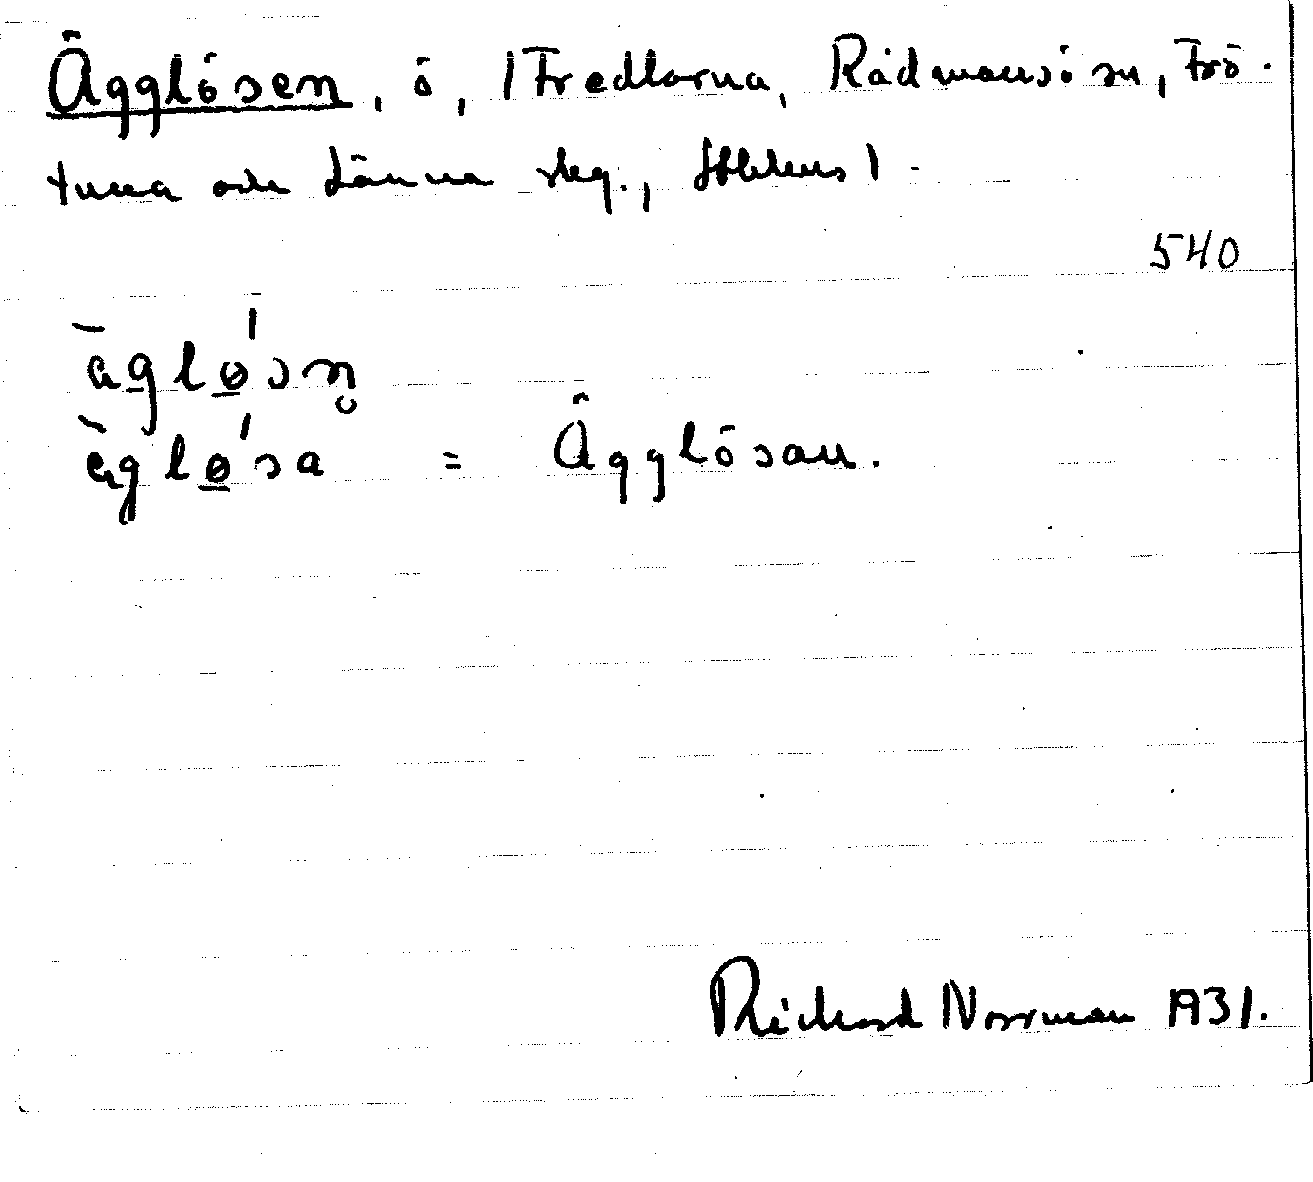 Ägglösen, ö, (Fredlarna, Rådmansö sn, Frö-
tuna och Länna skg., Sthlms l.
540
äglø´sn̥
äglø´sa = Ägglösan.
Richard Norrman 1931.